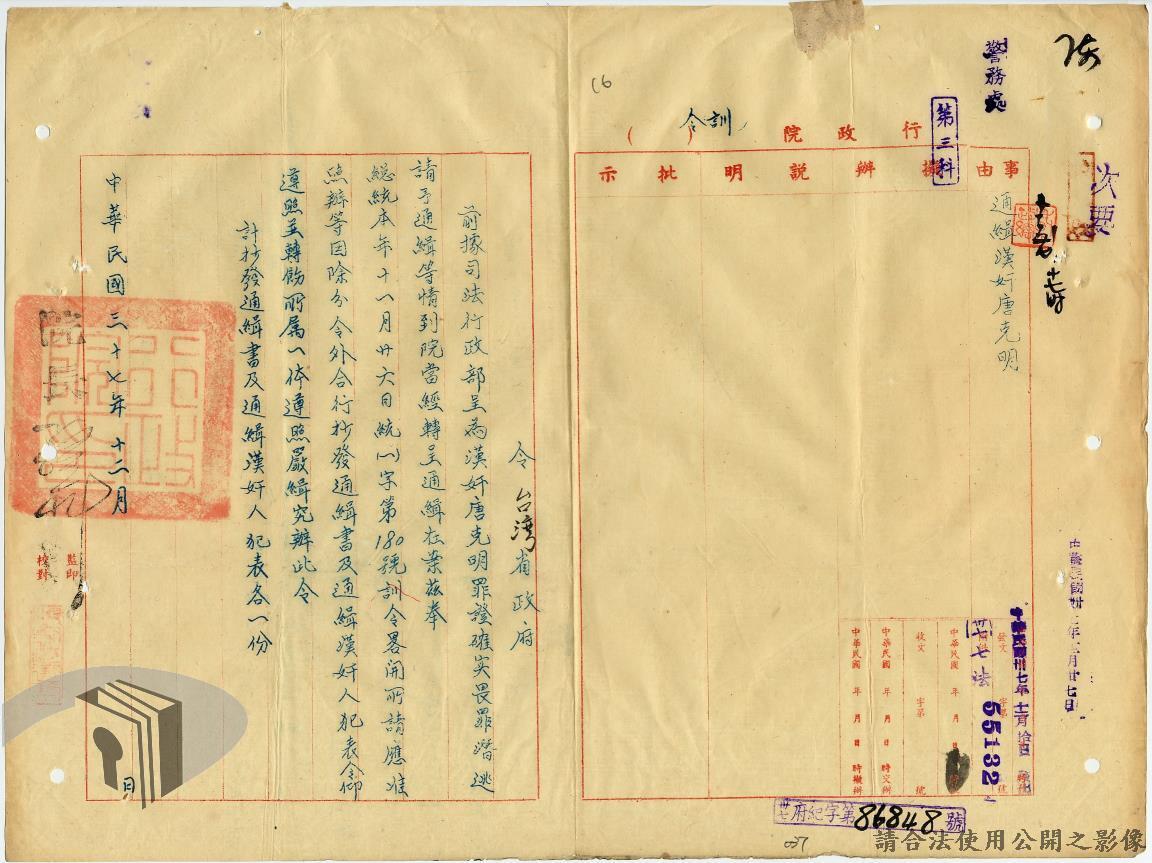 次要
警務處
第三科
行政院(訓令)
事由 擬辦 說明 批示
通緝漢奸唐克明
中華民國卅七年十二月拾日
卅七七法
55132
發文 字第 號
中華民國 年 月 日
收文 字第 號
中華民國 年 月 日 時交辦
中華民國 年 月 日 時擬辦
卅七府紀字第86848號
16
令 台灣省政府
前據司法行政部呈為漢奸唐克明罪證確實畏罪潛逃
請予通緝等情到院當經轉呈通緝在案茲奉
總統本年十一月廿六日統(一)字第180號訓令畧開所請應准
照辦等因除分令外合行抄發通緝書及通緝漢奸人犯表令仰
遵照並轉飭所屬一体遵照嚴緝究辦此令
計抄發通緝書及通緝漢奸人犯表各一份
院長
中華民國三十七年十二月 日
監印
校對
請合法使用公開之影像